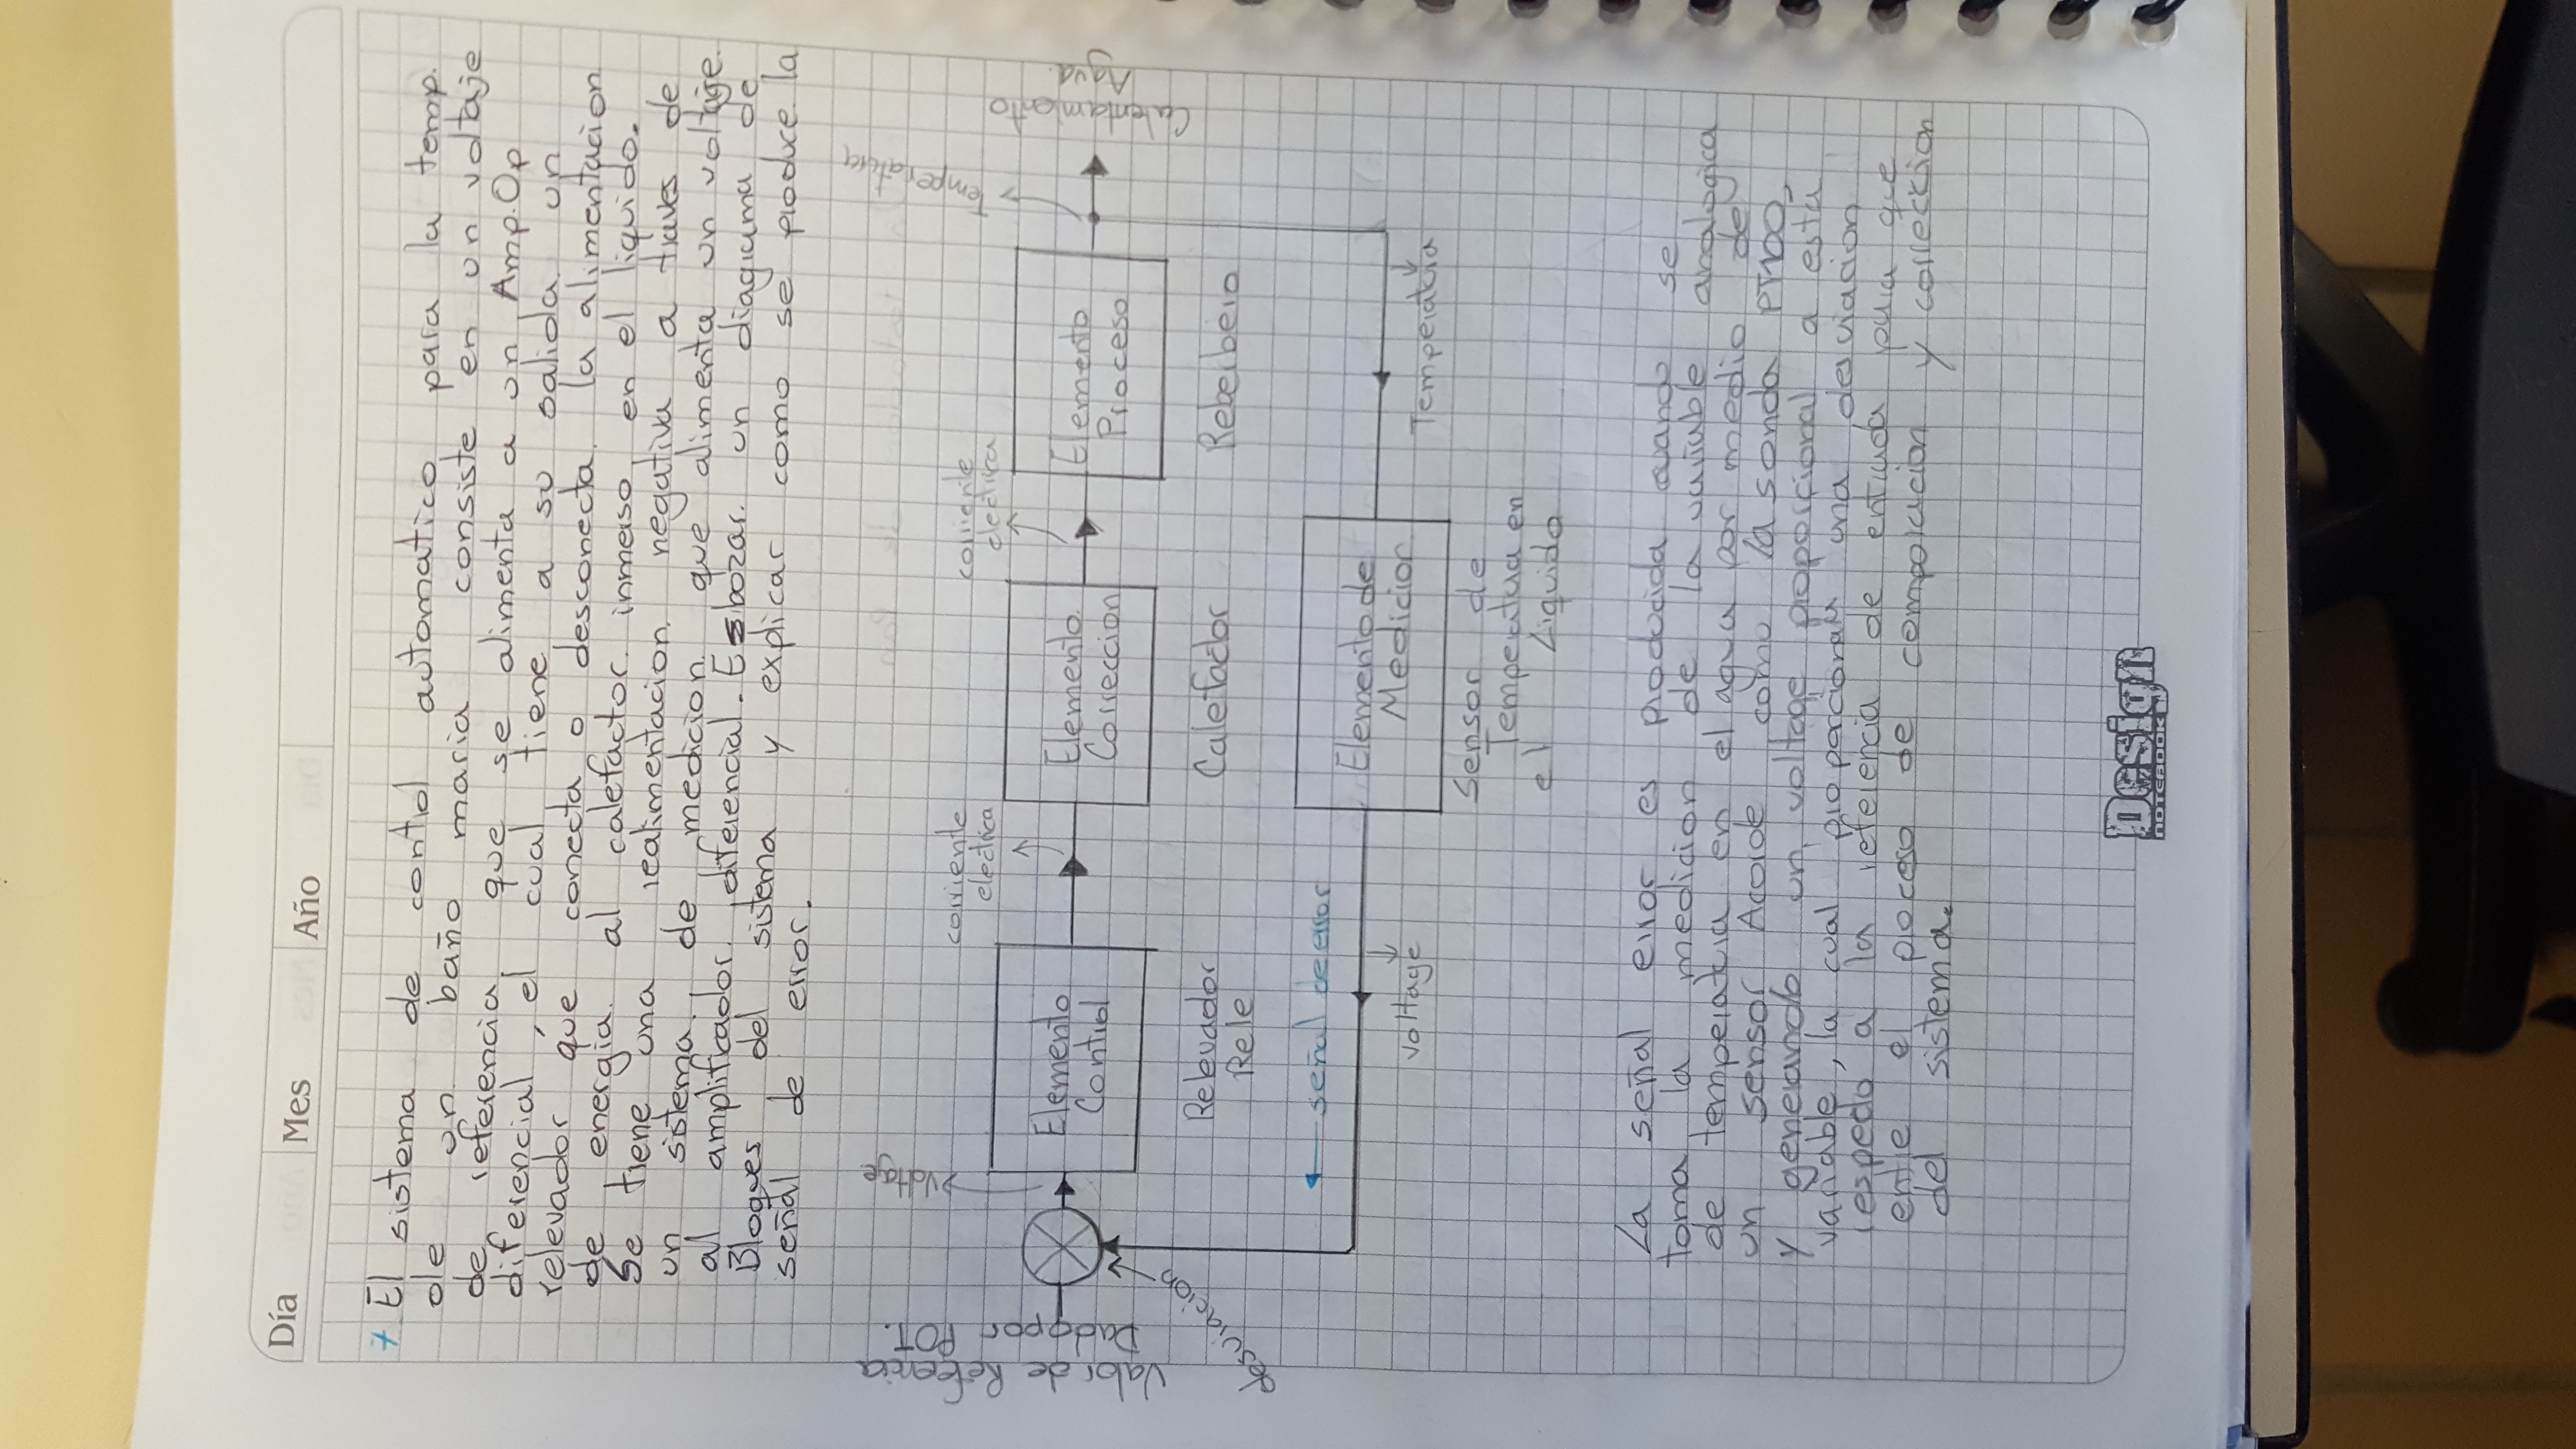 Día Mes Año
7 El sistema de control automatico para la temp.
de un baño maria consiste en un voltaje
de referencia que se alimenta a un Amp.Op
diferencial, el cual tiene a su salida un
relevador que conecta o desconecta la alimentacion
de energia al calefactor inmerso en el liquido.
Se tiene una realimentacion negativa a traves de
un sistema de medicion que alimenta un voltage
al amplificador diferencial. Esbozar un diagrama de
Bloques del sistema y explicar como se produce la
señal de error.
Valor de Referencia
Dado por POT.
Voltaje
corriente
electrica
corriente
electrica
Temperatura
Calentamiento
Agua
Elemento
Control
Elemento
Correccion
Elemento
Proceso
desviacion
Relevador
Rele
Calefactor
Reberbero
señal de error
Elemento de
Medicion
voltage
Temperatura
Sensor de
Temperatura en
el Liquido
La señal error es producida cuando se
toma la medicion de la variable analogica
de temperatura en el agua por medio de
un sensor Acorde como la sonda PT100,
y generando un voltage proporcional a esta
variable, la cual proporcionan una desviacion
respecto a la referencia de entrada para que
entre el proceso de comparacion y correccion
del sistema.
Design
NOTEBOOK